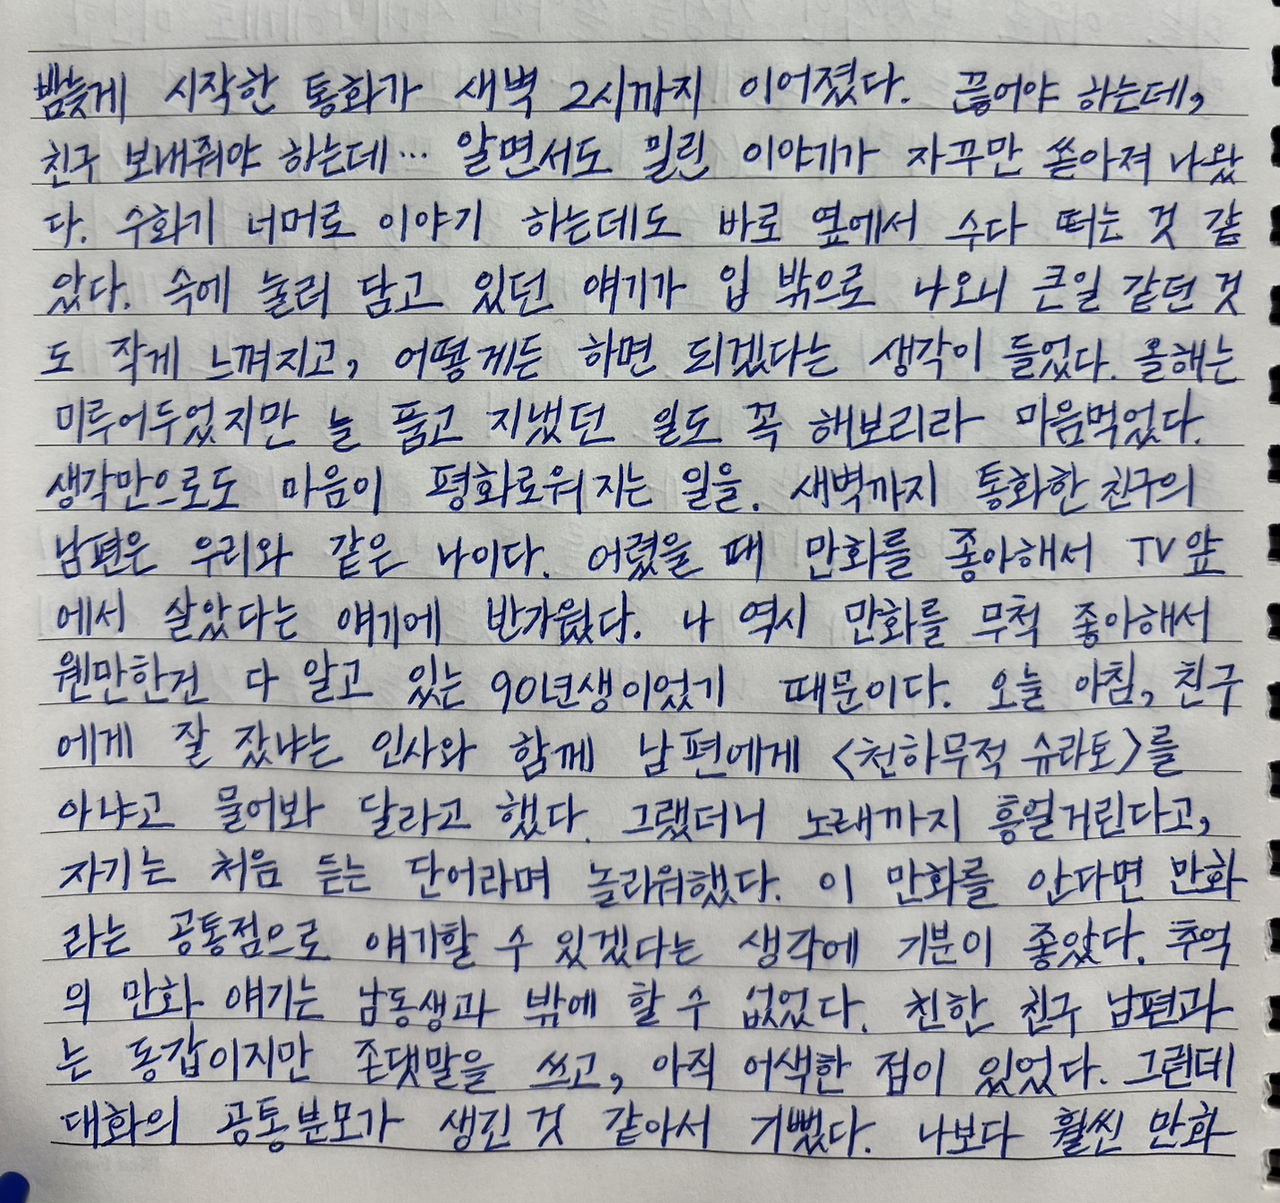 밤늦게 시작한 통화가 새벽 2시까지 이어졌다. 끊어야 하는데,
친구 보내줘야 하는데… 알면서도 밀린 이야기가 자꾸만 쏟아져 나왔
다. 수화기 너머로 이야기 하는데도 바로 옆에서 수다 떠는 것 같
았다. 속에 눌러 담고 있던 얘기가 입 밖으로 나오니 큰일 같던 것
도 작게 느껴지고, 어떻게든 하면 되겠다는 생각이 들었다. 올해는
미루어두었지만 늘 품고 지냈던 일도 꼭 해보리라 마음먹었다.
생각만으로도 마음이 평화로워지는 일을. 새벽까지 통화한 친구의
남편은 우리와 같은 나이다. 어렸을 때 만화를 좋아해서 TV 앞
에서 살았다는 얘기에 반가웠다. 나 역시 만화를 무척 좋아해서
웬만한건 다 알고 있는 90년생이었기 때문이다. 오늘 아침, 친구
에게 잘 잤냐는 인사와 함께 남편에게 <천하무적 슈라토>를
아냐고 물어봐 달라고 했다. 그랬더니 노래까지 흥얼거린다고,
자기는 처음 듣는 단어라며 놀라워했다. 이 만화를 안다면 만화
라는 공통점으로 얘기할 수 있겠다는 생각에 기분이 좋았다. 추억
의 만화 얘기는 남동생과 밖에 할 수 없었다. 친한 친구 남편과
는 동갑이지만 존댓말을 쓰고, 아직 어색한 점이 있었다. 그런데
대화의 공통분모가 생긴 것 같아서 기뻤다. 나보다 훨씬 만화